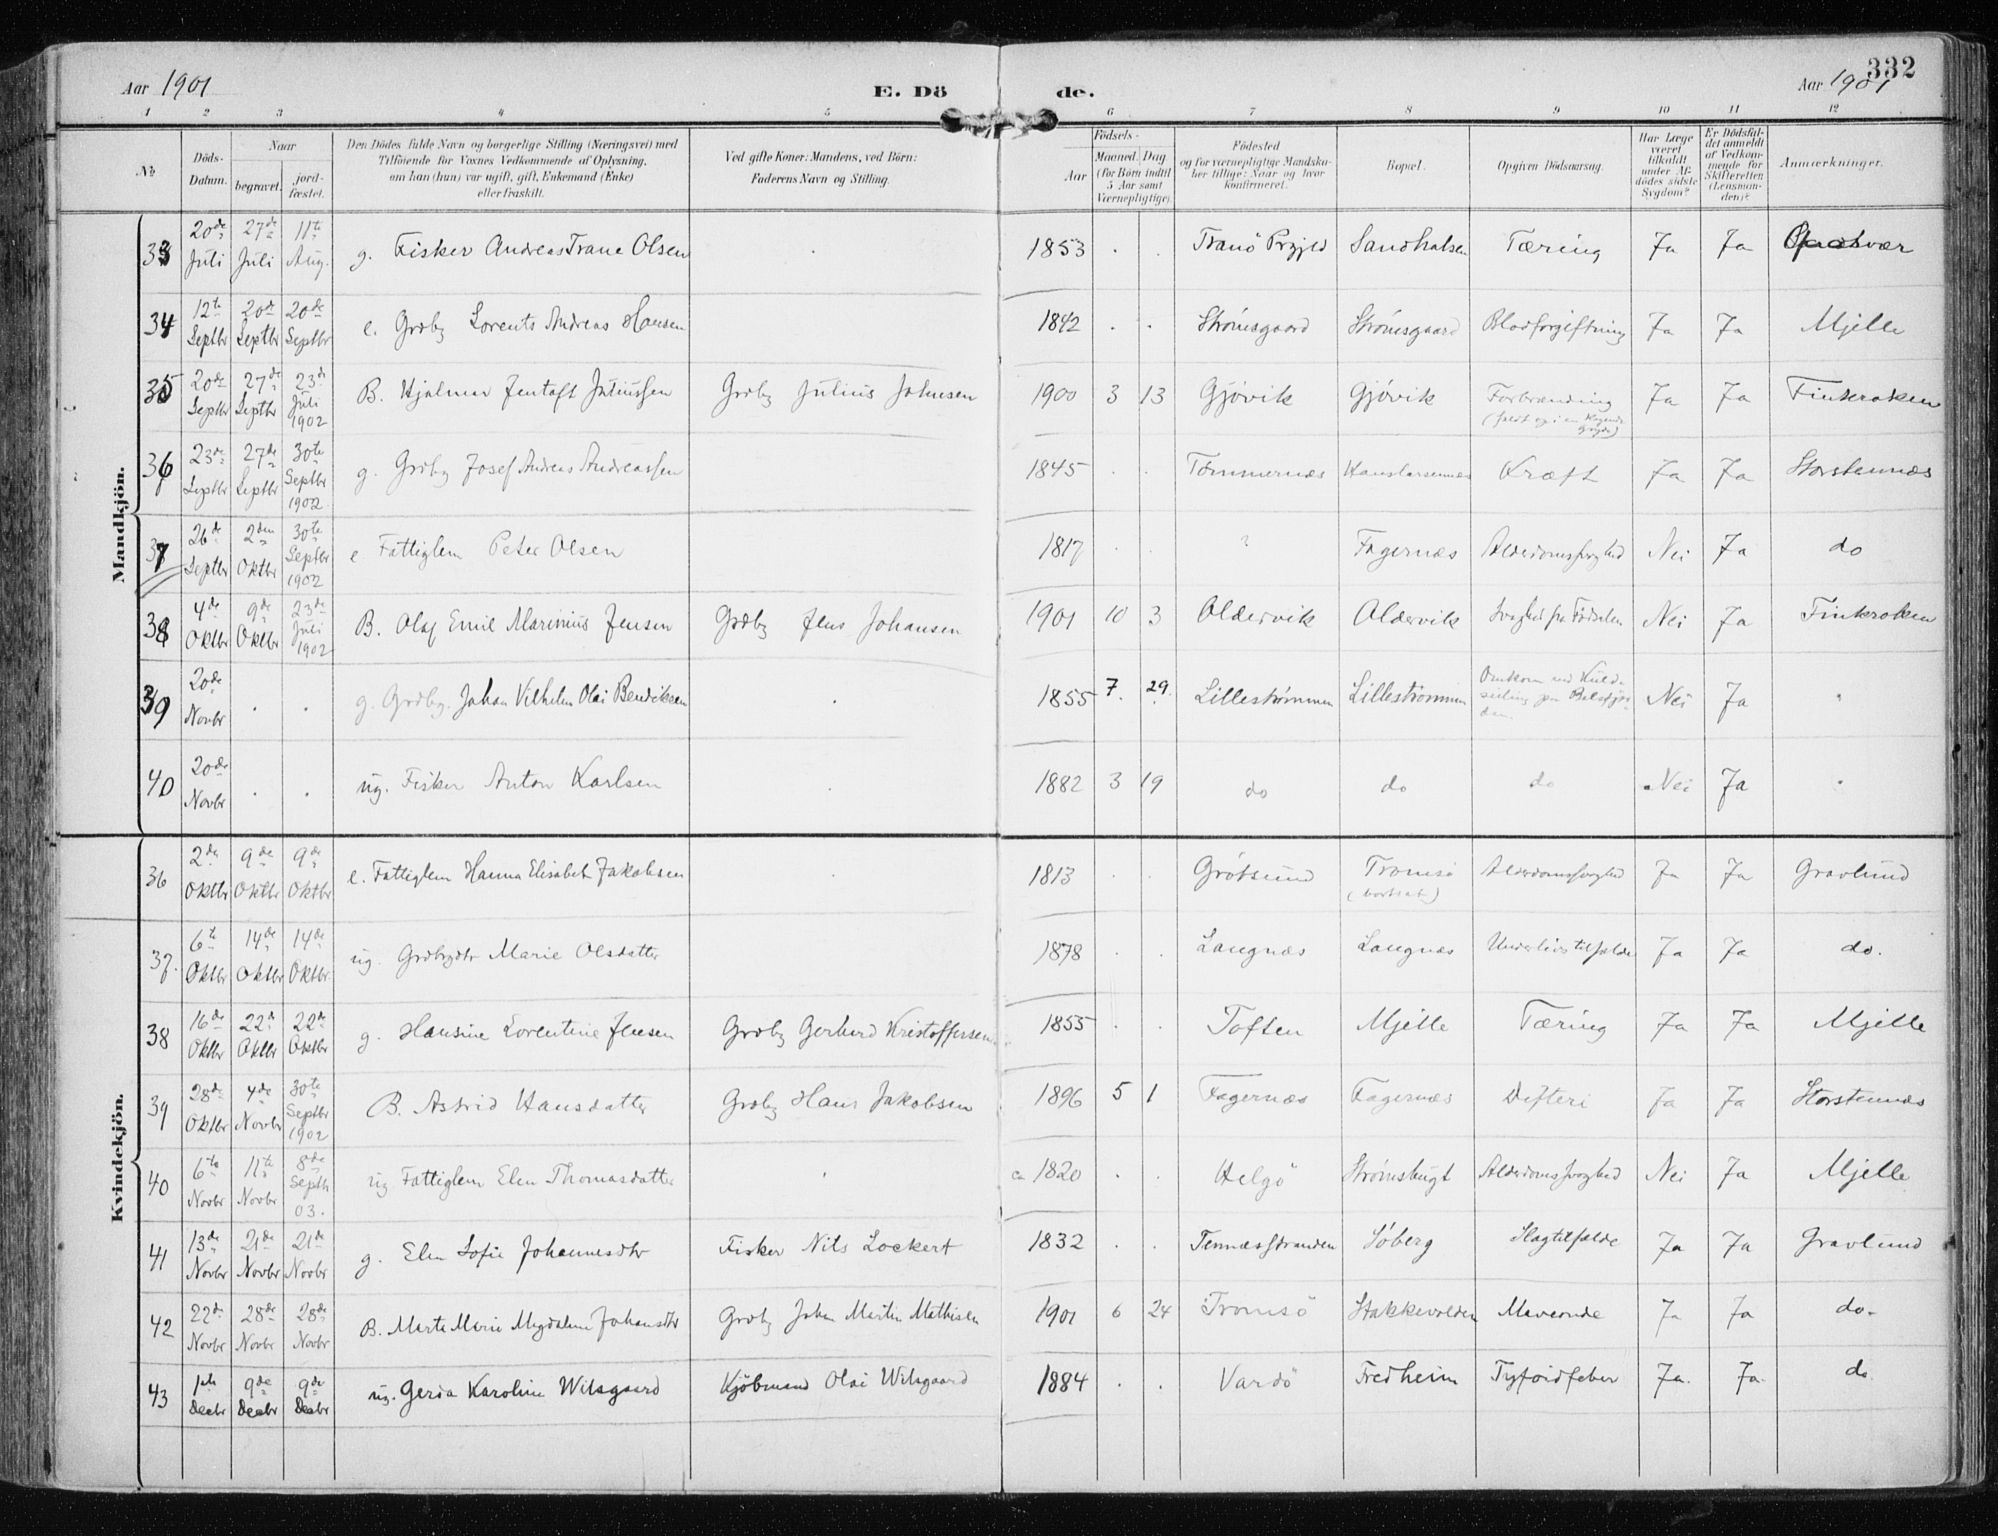 Aar 1901
E. Dö
de.
332
Aar 1901
1 2 3 4 5 6 7 8 9 10 11 12
No
Döds-Datum.
Naar
begravet.
jord-fæstet.
Den Dödes fulde Navn og borgerlige Stilling (Næringsvei) med
Tilföiende for Voxnes Vedkommende af Oplysning,
om han (hun) var ugift, gift, Enkemand (Enke)
eller fraskilt.
Ved gifte Koner: Mandens, ved Börn:
Faderens Navn og Stilling.
Födsels-
Aar
Maaned. Dag
(for Börn indtil
5 Aar samt
Værnepligtige).
Födested
og for værnepligtige Mandska-
ber tillige: Naar og hvor
konfirmeret.
Bopæl.
Opgiven Dödsaarsag.
Har Læge
været
tilkaldt
under Af-
dödes sidste
Sygdom?
Er Dödsfal-
det anmeldt
af Vedkom-
mende for
Skifteretten
(Lensman-
den)?
Anmærkninger.
Mandkjön.
33 20de Juli 27de Juli 11te Aug. g. Fisker Andreas Trane Olsen 1853 Tranö Prgjld Sandhalsen Tæring Ja Ja
34 12te Septbr 20de Septbr 20de Septbr e. Grdbr Lorents Andreas Hansen 1842 Strömsgaard Strömsgaard Blodforgiftning Ja Ja Mjelle
35 20de Septbr 27de Septbr 23de Juli 1902 B. Hjalmar Jentoft Juliussen Grdbr Julius Johnsen 1900 3 13 Gjövik Gjövik Forbrænding Ja Ja Finkroken
36 23de Septbr 27de Septbr 30te Septbr 1902 g. Grdbr Josef Andreas Andreassen 1845 Tömmernæs Hanslarsennæs Kræft Ja Ja Storstennæs
37 26de Septbr 2den Oktbr 30te Septbr 1902 e. Fattiglem Peter Olsen 1817 ? Fagernæs Alderdomssvaghed Nei Ja do
38 4de Oktbr 9de Oktbr 23de Juli 1902 B. Olaf Emil Marinius Jensen Grdbr Jens Johansen 1901 10 3 Oldervik Oldervik Svaghed fra Födselen Nei Ja Finkroken
39 20de Novbr g. Grdbr. Johan Vilhelm Olai Bendiksen 1855 7. 29. Lilleströmmen Lilleströmmen Omkom ved Nei Ja
40 20de Novbr ug. Fisker Anton Karlsen 1882 3 19 do do do Nei Ja
Kvindekjön.
36 2de Oktbr 9de Oktbr 9de Oktbr e. Fattiglem Hanna Elisabet Jakobsen 1813 Grötsund Tromsö (bortsat) Alderdomssvaghed Ja Ja Gravlund
37. 6te Oktbr 14de Oktbr 14de Oktbr ug. Grdbrdtr Marie Olsdatter 1878 Langnæs Langnæs Underlivstilfælde Ja Ja do.
38 16de Oktbr 22de Oktbr 22de Oktbr g. Hansine Lorentine Jensen Grdbr Gerhard Kristoffersen 1855 Toften Mjelle Tæring Ja Ja Mjelle
39 28de Oktbr 4de Novbr 30te Septbr 1902 B. Astrid Hansdatter Grdbr Hans Jakobsen 1896 5 1 Fagernæs Fagernæs Difteri Ja Ja Storstennæs
40 6te Novbr 11te Novbr 8de Septbr 03. ug. Fattiglem Elen Thomasdatter ca 1820 Helgö Strömsbugt Alderdomssvaghed Nei Ja Mjelle
41 13de Novbr 21de Novbr 21de Novbr g. Elen Sofie Johannesdtr Fisker Nils Lockert 1832 Tennæsstranden Söberg Slagtilfælde Ja Ja Gravlund
42 22de Novbr 28de Novbr 28de Novbr B. Marta Marie Magdalene Johansdtr Grdbr Johan Martin Mathisen 1901 6 24 Tromsö Stakkevolden Maveonde Ja Ja do.
43 1ste Decbr 9de Decbr 9de Decbr ug. Gerda Karoline Wilsgaard Kjöbmand Olai Wilsgaard 1884 Vardö Fredheim Tyfoidfeber Ja. Ja. do.